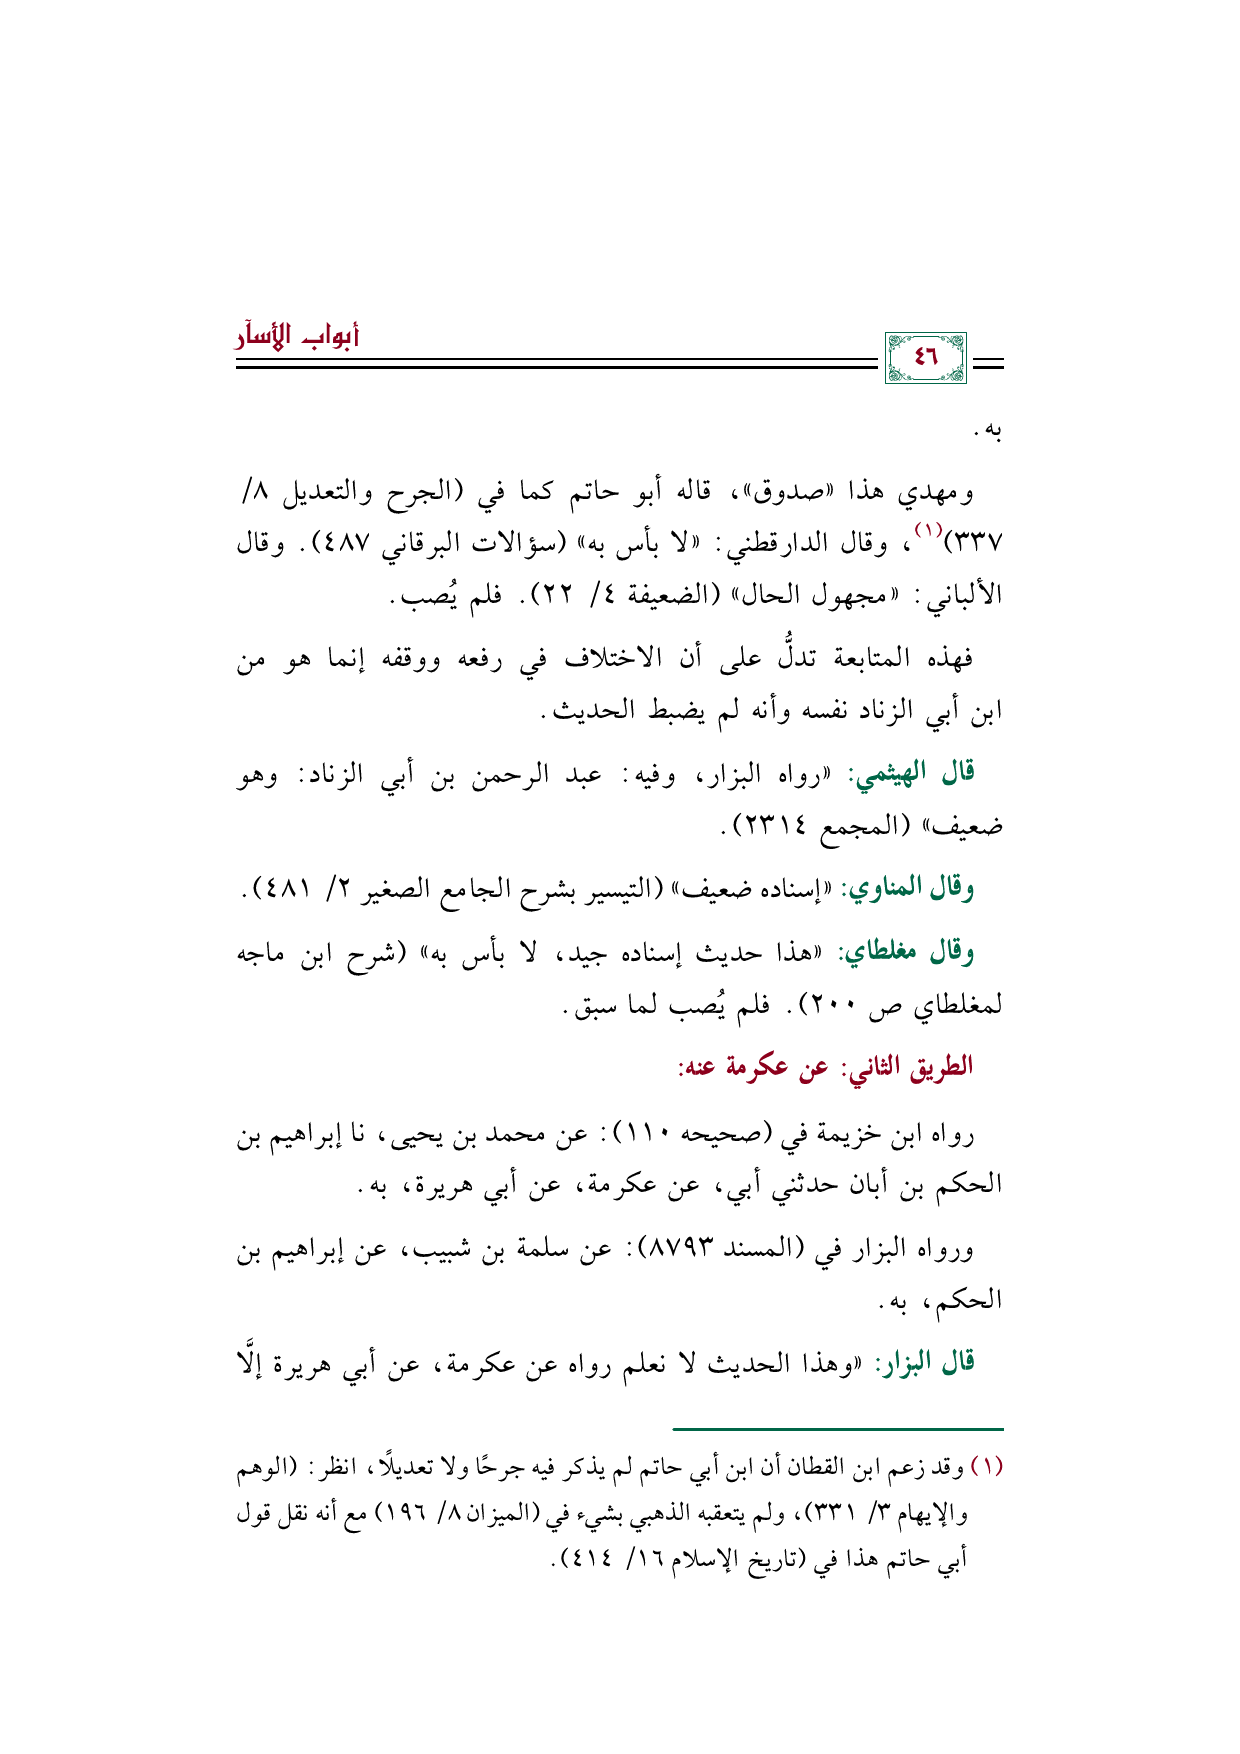 أبواب الأسآر
٤٦
به.
ومهدي هذا «صدوق»، قاله أبو حاتم كما في (الجرح والتعديل ٨/
٣٣٧)(١)، وقال الدارقطني: «لا بأس به» (سؤالات البرقاني ٤٨٧). وقال
الألباني: «مجهول الحال» (الضعيفة ٤/ ٢٢). فلم يُصب.
فهذه المتابعة تدلُّ على أن الاختلاف في رفعه ووقفه إنما هو من
ابن أبي الزناد نفسه وأنه لم يضبط الحديث.
قال الهيثمي: «رواه البزار، وفيه: عبد الرحمن بن أبي الزناد: وهو
ضعيف» (المجمع ٢٣١٤).
وقال المناوي: «إسناده ضعيف» (التيسير بشرح الجامع الصغير ٢/ ٤٨١).
وقال مغلطاي: «هذا حديث إسناده جيد، لا بأس به» (شرح ابن ماجه
لمغلطاي ص ٢٠٠). فلم يُصب لما سبق.
الطريق الثاني: عن عكرمة عنه:
رواه ابن خزيمة في (صحيحه ١١٠): عن محمد بن يحيى، نا إبراهيم بن
الحكم بن أبان حدثني أبي، عن عكرمة، عن أبي هريرة، به.
ورواه البزار في (المسند ٨٧٩٣): عن سلمة بن شبيب، عن إبراهيم بن
الحكم، به.
قال البزار: «وهذا الحديث لا نعلم رواه عن عكرمة، عن أبي هريرة إلَّا
(١) وقد زعم ابن القطان أن ابن أبي حاتم لم يذكر فيه جرحًا ولا تعديلًا، انظر: (الوهم
والإيهام ٣/ ٣٣١)، ولم يتعقبه الذهبي بشيء في (الميزان ٨/ ١٩٦) مع أنه نقل قول
أبي حاتم هذا في (تاريخ الإسلام ١٦/ ٤١٤).